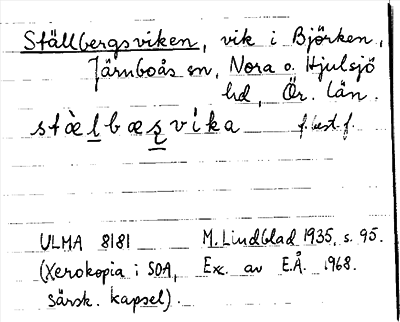 Ställbergsviken, vik i Björken,
Järnboås sn, Nora o. Hjulsjö
hd, Ör. län.
stàlbæsvíka f. best. f.
ULMA 8181 M. Lindblad 1935, s. 95.
(Xerokopia i SOA, Exc. av E.Å. 1968.
särsk. kapsel).